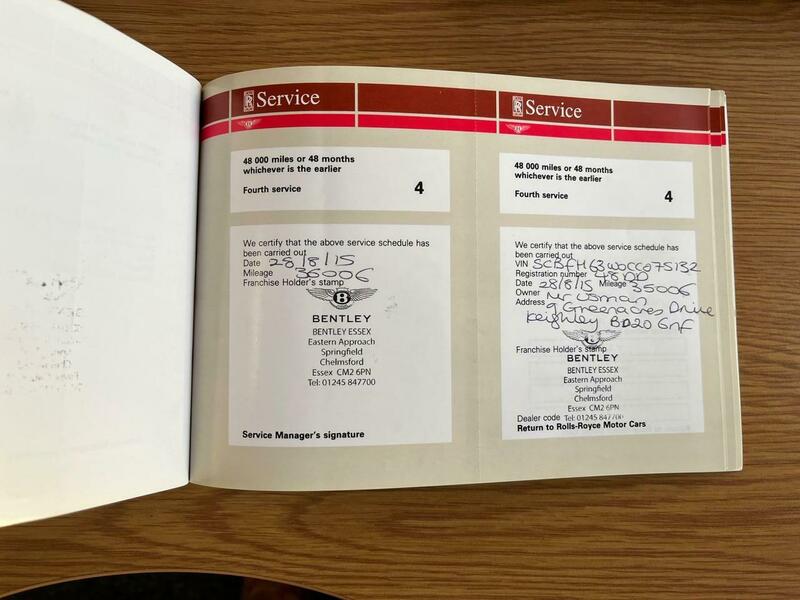 Service
48 000 miles or 48 months
whichever is the earlier
Fourth service 4
We certify that the above service schedule has
been carried out
Date 28/8/15
Mileage 35006
Franchise Holder's stamp
B
BENTLEY
BENTLEY ESSEX
Eastern Approach
Springfield
Chelmsford
Essex CM2 6PN
Tel: 01245 847700
Service Manager's signature
Service
48 000 miles or 48 months
whichever is the earlier
Fourth service 4
We certify that the above service schedule has
been carried out
VIN
Registration number 48 DD
Date 28/8/15 Mileage 35006
Owner Mr Usman
Address 9 Greenacres Drive
Keighley BD20 6NF
Franchise Holder's stamp
BENTLEY
BENTLEY ESSEX
Eastern Approach
Springfield
Chelmsford
Essex CM2 6PN
Dealer code Tel: 01245 847700
Return to Rolls-Royce Motor Cars